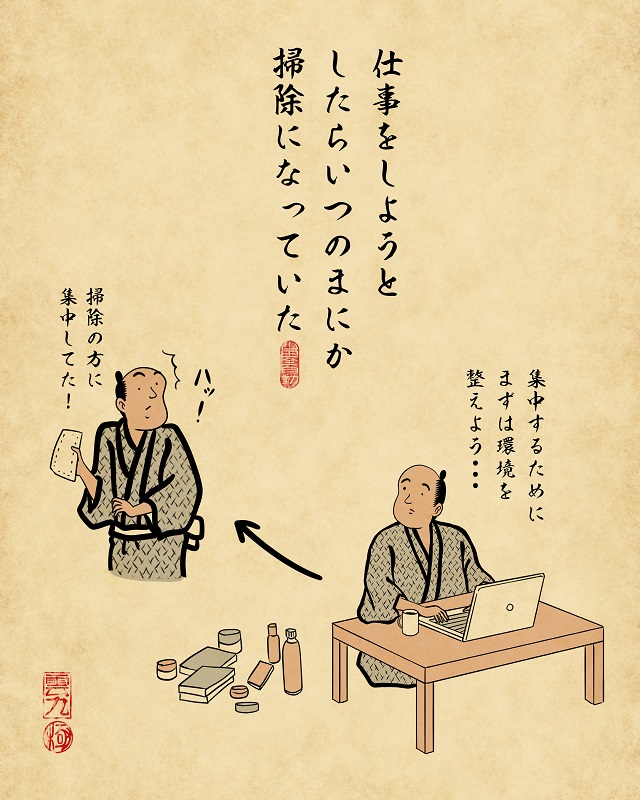 仕事をしようと
したらいつのまにか
掃除になっていた
集中するために
まずは環境を
整えよう・・・
ハッ！
掃除の方に
集中してた！